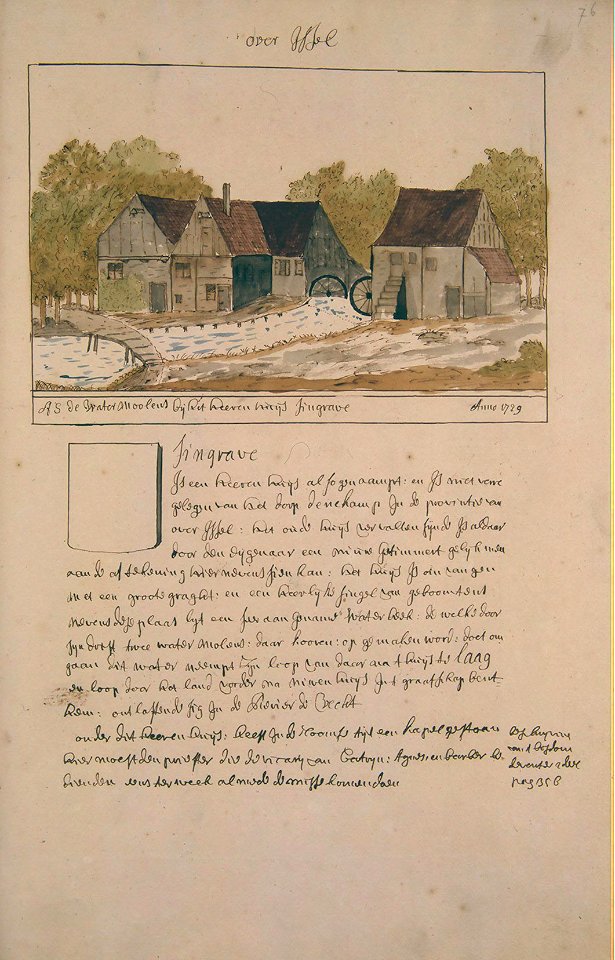 76
over Ysel
A5 de Water Moolens bij het heeren huijs Singrave
Anno 1729
Singrave
Is een heeren huijs alsogenaampt: en Is niet verre
gelegen van het dorp denekamp In de provintie van
over Yssel: het oude huijs vervallen sijnde Is aldaar
door den Eijgenaar een nieuw getimmert gelijk men
aan de aftekening hier nevens sien kan: het huijs Is omvangen
met een groote graght: en een heerlijke singel van geboomtens
nevens dese plaats lijt een seer aangename Water beek: de welke door
sijn drift twee water molens: daar kooren: op gemalen word: doet om
gaan dit water neempt sijn loop van daar na t huijs te laag
en loop door het land verder na nieuwenhuijs Int graafschap bent
hem: ontlastende sig In de Revier de Vecht
onder dit heeren huijs: heeft In de roomse tijt een kapel gestaan
hier moest den priester die de vicary van Catryn: Agnes en barber be
dienden eens ter week al mede de misse komen doen
van t bisdom
deventer 2 deel
pag 356